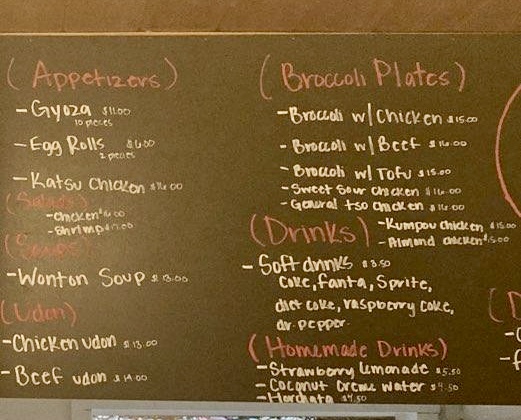 (Appetizers)
-Gyoza $11.00
10 pieces
-Egg Rolls $6.00
2 pieces
-Katsu Chicken $16.00
(Salads)
-chicken
-shrimp
(Soups)
-Wonton Soup $13.00
(Udon)
-Chicken udon $13.00
-Beef udon $14.00
(Broccoli Plates)
-Broccoli w/Chicken $15.00
-Broccoli w/Beef $16.00
-Broccoli w/Tofu $15.00
-Sweet sour chicken $16.00
-General tso chicken $16.00
-Kumpou chicken $15.00
-Almond chicken $15.00
(Drinks)
-Soft drinks $3.50
Coke, fanta, Sprite,
diet coke, raspberry coke,
dr. pepper.
(Homemade Drinks)
-Strawberry lemonade $5.50
-Coconut creme water $4.50
-Horchata $4.50